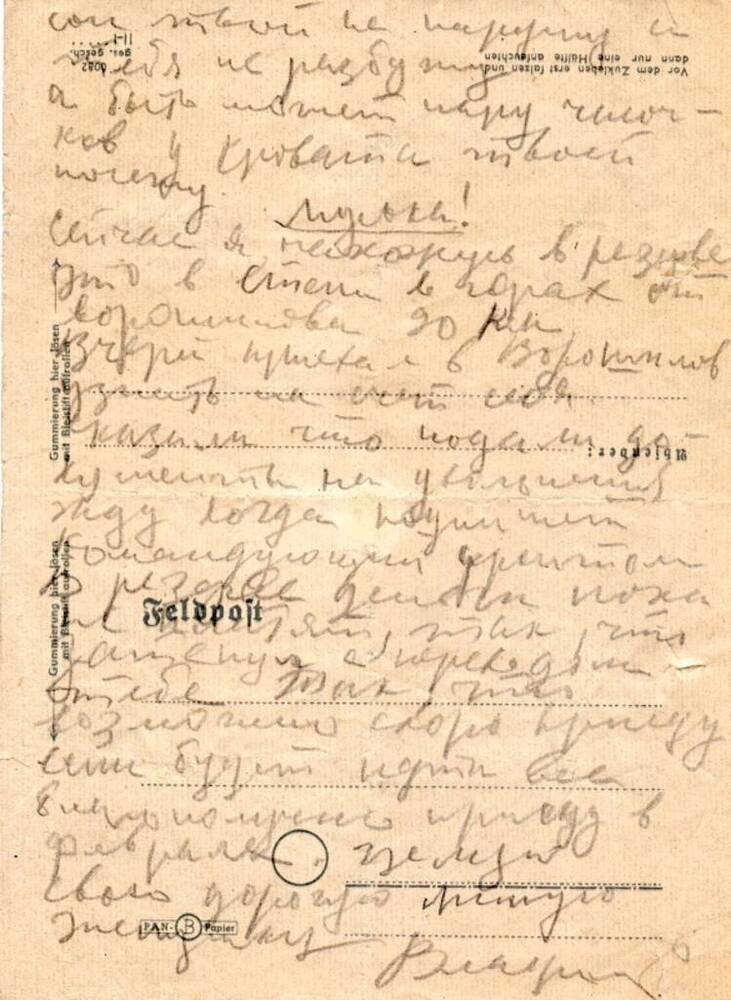 сон твой не нарушу и
тебя не разбужу
а быть может пару часоч-
ков у кровати твоей
Мулька!
Сейчас я нахожусь в резерве
это в степи в горах от
Ворошилова 90 км
вчера приехал в Ворошилов
узнать на счет себя.
сказали что подали до-
кументы на увольнение
жду когда подпишет
командующий фронтом
В резерве деньги пока
не платят, так что
с переводом
тебе Так что
возможно скоро приеду
если будет идти все
благополучно приеду в
феврале. Целую
свою дорогую милую
женушку
Vor dem Zukleben erst falzen und
dann nur eine Hälfte anfeuchten
0082
ges. gesch.
II-1
Gummierung hier lösen
mit Bleistift aufrollen
Absender:
Gummierung hier lösen
mit Bleistift aufrollen
Feldpost
PAN- B Papier